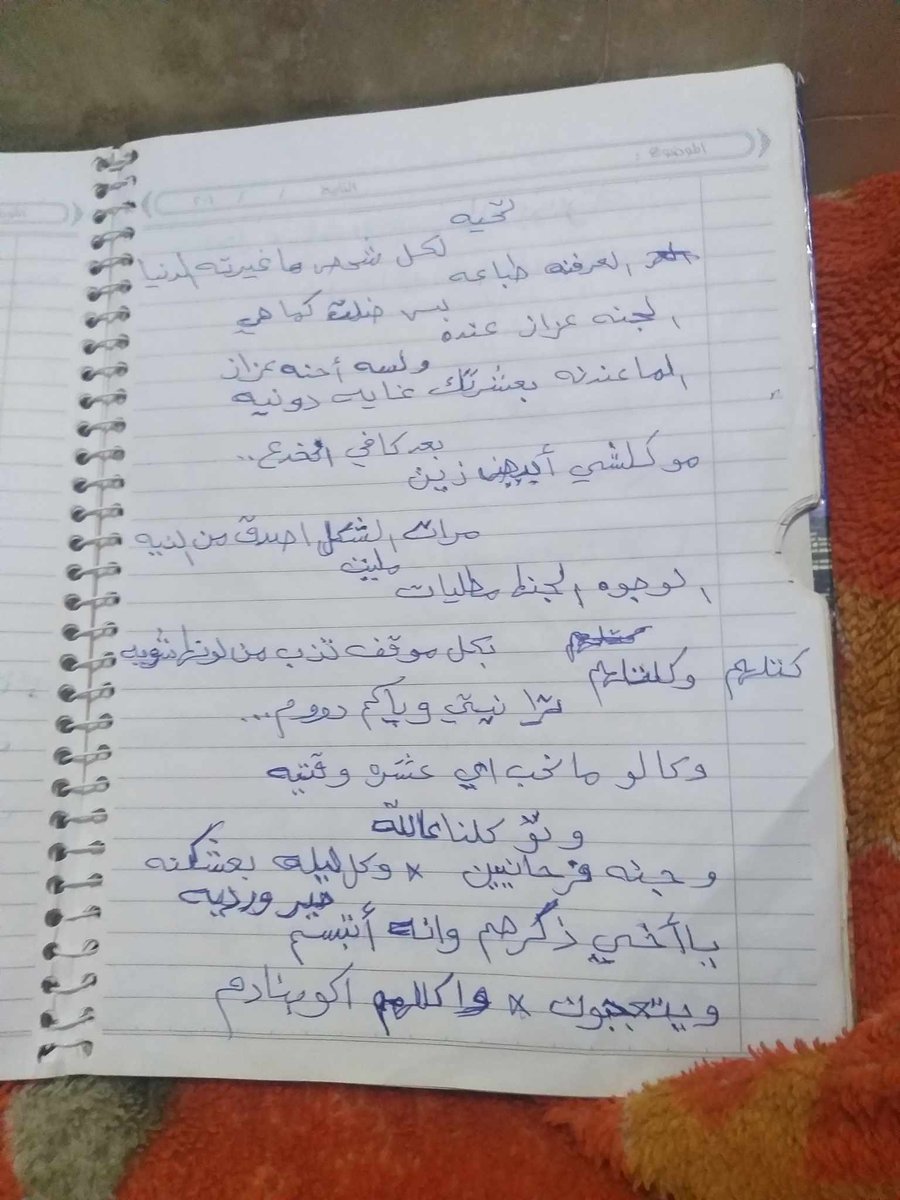 الموضوع :
التاريخ / / ٢٠
تحيه
العرفنه طباعه لكل شخص ماغيرته الدنيا
الجنه عزاز عنده بس ضلت كما هي
ولسه أحنه عزاز
الماعندنه بعشرتك غايه دونيه
بعد كافي انخدع..
موكلشي أبيض زين
مرات الشكل اصدق من النيه
مليت
الوجوه الجنط مطليات
كتلهم وكلتالهم بكل موقف تذب من لونها شويه
ترا نيتي وياكم دووم...
وكالو مانحب اي عشره وقتيه
وتو كلنا عالله
وجنه فرحانيين × وكل ليله بعشكنه
خير ورديه
ياأخي ذكرهم وانه أتبسم
ويتعجبون × واكللهم اكو بنادم